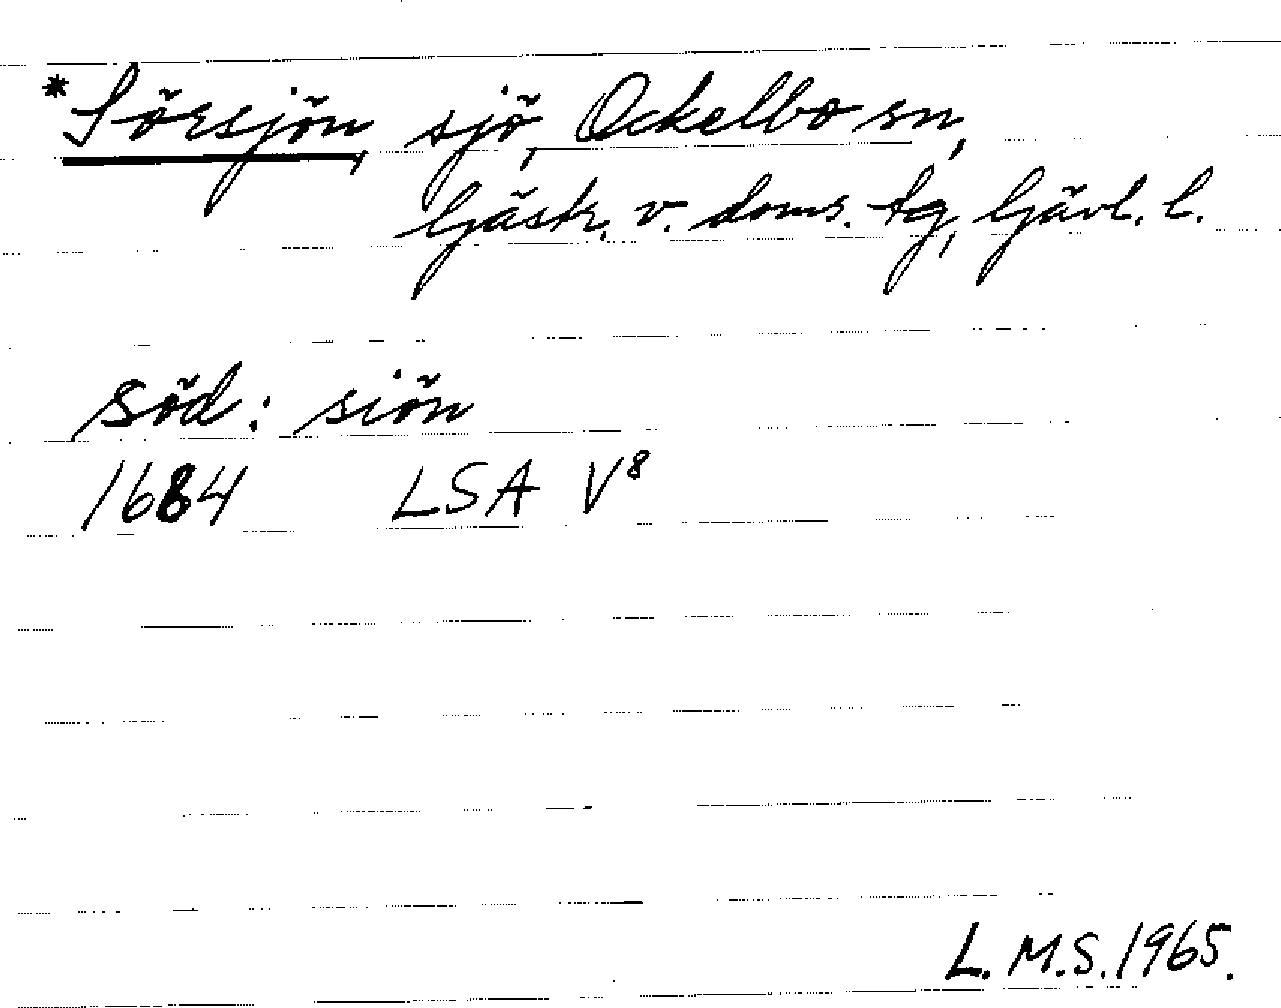 *Sörsjön, sjö, Ockelbo sn,
Gästr. v. doms. tg, Gävl. l.
söd: siön
1684 LSA V⁸
L.M.S. 1965.